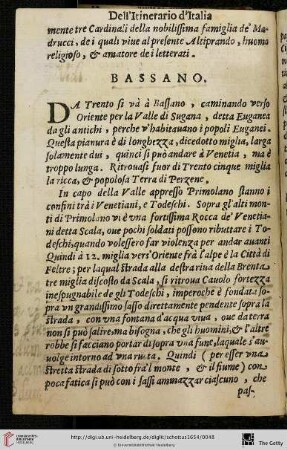 Dell'Itinerario d'Italia
mente tre Cardinali della nobilissima famiglia de' Ma-
drucci, de i quali viue al presente Altiprando, huomo
religioso, & amatore de i letterati.
BASSANO.
DA Trento si và à Bassano, caminando verso
Oriente per la Valle di Sugana, detta Euganea
da gli antichi, perche v'habitauano i popoli Euganei.
Questa pianura è di longhezza, dicedotto miglia, larga
solamente dui, quinci si può andare à Venetia, ma è
troppo lunga. Ritrouasi fuor di Trento cinque miglia
la ricca, & popolosa Terra di Perzene,
In capo della Valle appresso Primolano stanno i
confini trà i Venetiani, e Todeschi. Sopra gl'alti mon-
ti di Primolano vi è vna fortissima Rocca de' Venetia-
ni detta Scala, oue pochi soldati possono ributtare i To-
deschi, quando volessero far violenza per andar auanti
Quindi à 12. miglia vers' Oriente frà l'alpe è la Città di
Feltre; per laqual strada alla destra riua della Brenta
tre miglia discosto da Scala, si ritroua Cauolo fortezza
inespugnabile de gli Todeschi, imperoche è fondata so-
pra vn grandissimo sasso direttamente pendente sopra la
strada, con vna fontana d'acqua viua, oue da terra
non si può salire, ma bisogna, che gli huomini, & l'altre
robbe si facciano portar di sopra vna fune, laquale s'au-
uolge intorno ad vna ruota. Quindi (per esser vna
stretta strada di sotto frà'l monte, & il fiume) con
poca fatica si può con i sassi ammazzar ciascuno, che
pas-
http://digi.ub.uni-heidelberg.de/diglit/schottus1654/0048
© Universitätsbibliothek Heidelberg
The Getty